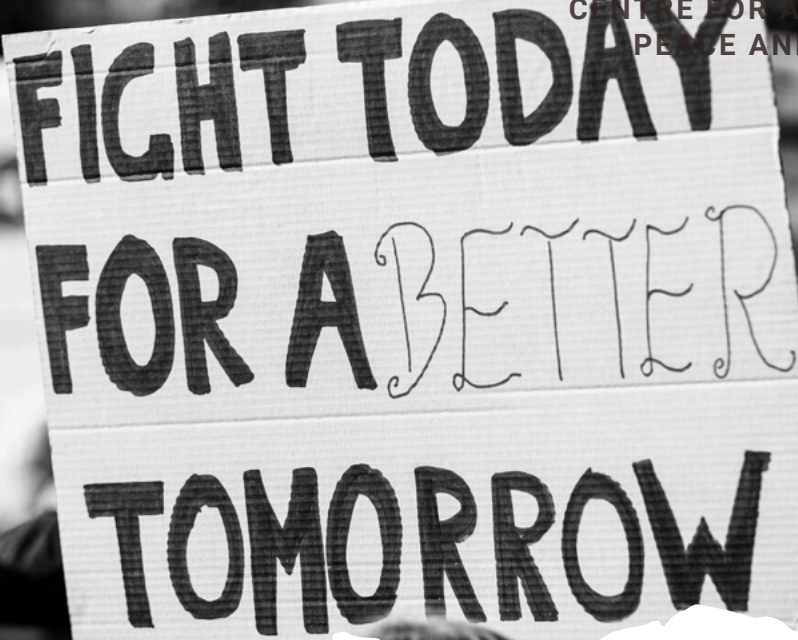 CENTRE FOR A
PEACE AN
FIGHT TODAY
FOR A BETTER
TOMORROW